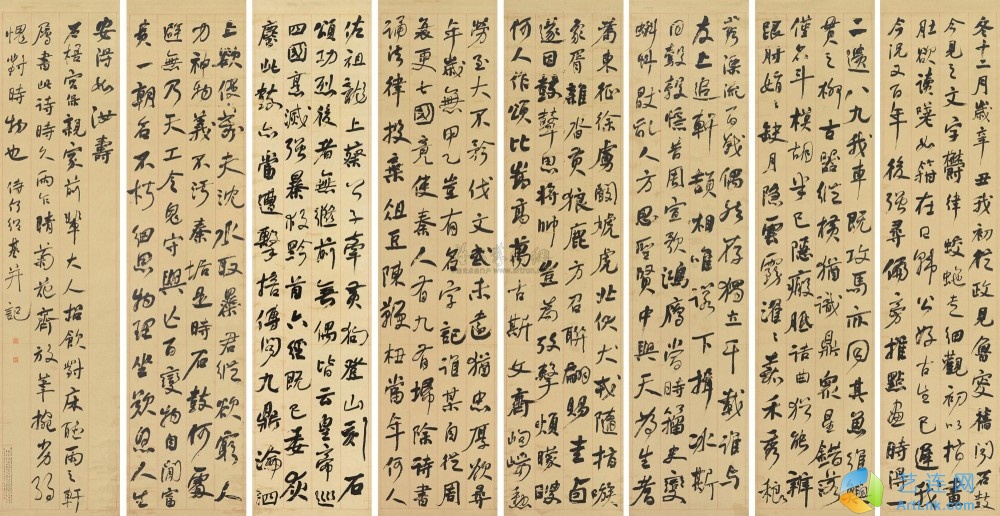 冬十二月歲辛丑我初從政見魯叟舊聞石鼓
今見之文字鬱律蛟蛇走細觀初以指畫
肚欲讀嗟如箝在口韓公好古生已遲我
今況又百年後強尋偏旁推點畫時得一
二遺八九我車既攻馬亦同其魚維鱮
貫之柳古器縱橫猶識鼎眾星錯落
僅名斗模糊半已隱瘢胝詰曲猶能辨
跟肘娟娟缺月隱雲霧濯濯嘉禾秀稂
莠漂流百戰偶然存獨立千載誰與
友上追軒頡相唯諾下揖冰斯
同鷇㝅憶昔周宣歌鴻雁當時籀史變
蝌蚪厭亂人方思聖賢中興天為生耆
耇東征徐虜闞虓虎北伏犬戎隨指嗾
象胥雜沓貢狼鹿方召聯翩賜圭卣
遂因鼓鼙思將帥豈為考擊煩矇瞍
何人作頌比嵩高萬古斯文齊岣嶁勳
勞至大不矜伐文武未遠猶忠厚欲尋
年歲無甲乙豈有名字記誰某自從周
衰更七國竟使秦人有九有掃除詩書
誦法律投棄俎豆陳鞭杻當年何人
佐祖龍上蔡公子牽黃狗登山刻石
頌功烈後者無繼前無偶皆云皇帝巡
四國烹滅強暴救黔首六經既已委灰
塵此鼓亦當遭擊掊傳聞九鼎淪泗
上欲使萬夫沈水取暴君縱欲窮人
力神物義不污秦垢是時石鼓何處
避無乃天工令鬼守興亡百變物自閒富
貴一朝名不朽細思物理坐歎息人生
安得如汝壽
石梧宮保親家前輩大人招飲對床聽雨之軒
屬書此詩時久雨乍晴菊花齊放筆椀劣弱
愧對時物也 侍何紹基并記
艺连网
ArtLink.com